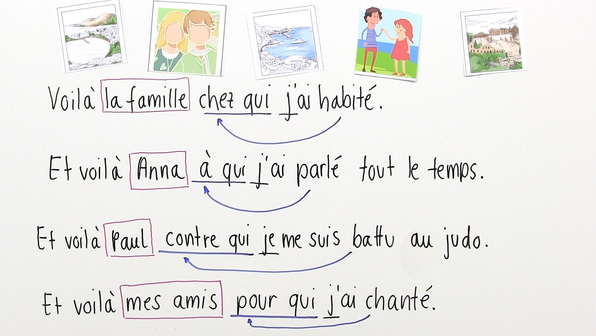 Voilà la famille chez qui j'ai habité.
Et voilà Anna à qui j'ai parlé tout le temps.
Et voilà Paul contre qui je me suis battu au judo.
Et voilà mes amis pour qui j'ai chanté.